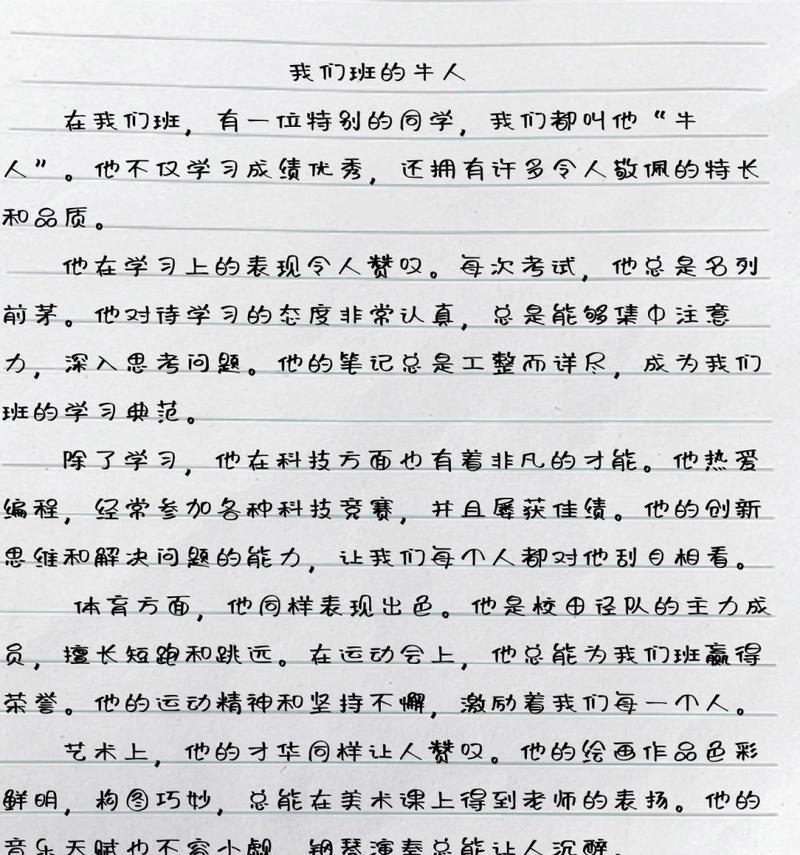 我们班的牛人
在我们班，有一位特别的同学，我们都叫他“牛
人”。他不仅学习成绩优秀，还拥有许多令人敬佩的特长
和品质。
他在学习上的表现令人赞叹。每次考试，他总是名列
前茅。他对待学习的态度非常认真，总是能够集中注意
力，深入思考问题。他的笔记总是工整而详尽，成为我们
班的学习典范。
除了学习，他在科技方面也有着非凡的才能。他热爱
编程，经常参加各种科技竞赛，并且屡获佳绩。他的创新
思维和解决问题的能力，让我们每个人都对他刮目相看。
体育方面，他同样表现出色。他是校田径队的主力成
员，擅长短跑和跳远。在运动会上，他总能为我们班赢得
荣誉。他的运动精神和坚持不懈，激励着我们每一个人。
艺术上，他的才华同样让人赞叹。他的绘画作品色彩
鲜明，构图巧妙，总能在美术课上得到老师的表扬。他的
音乐天赋也不容小觑，钢琴演奏总能让人沉醉。